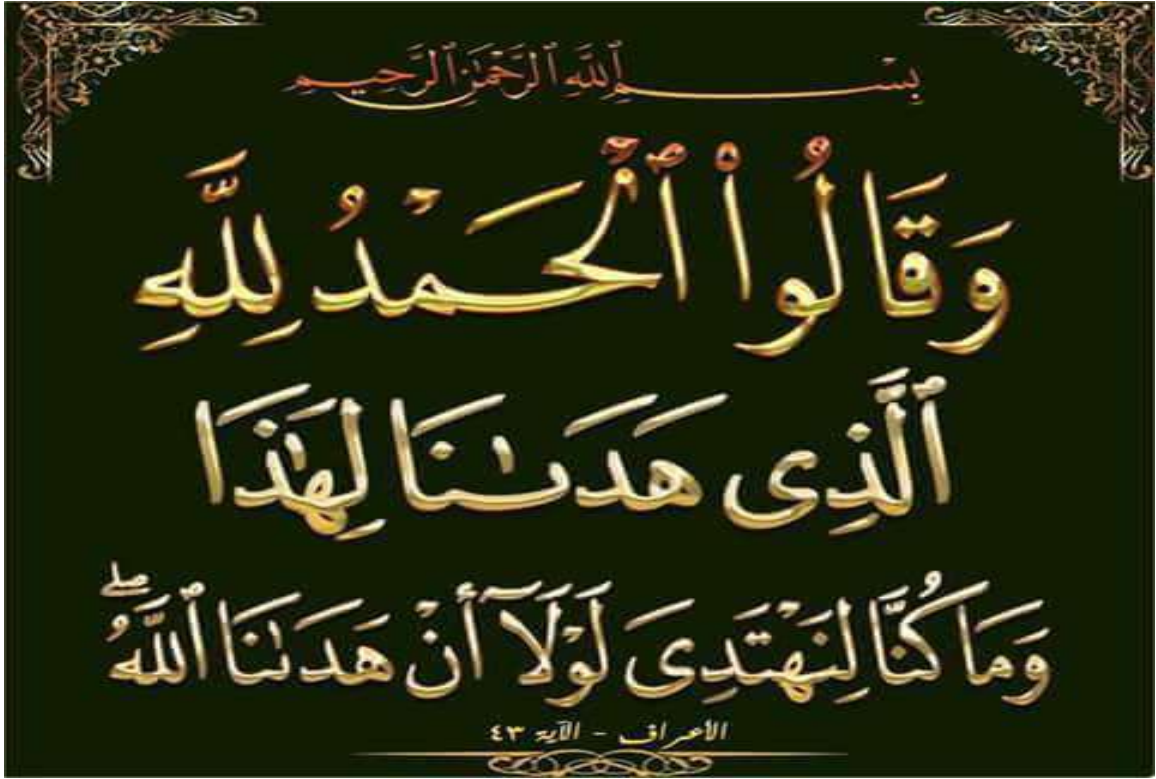 بِسْمِ ٱللَّهِ ٱلرَّحْمَٰنِ ٱلرَّحِيمِ
وَقَالُوا۟ ٱلْحَمْدُ لِلَّهِ
ٱلَّذِى هَدَىٰنَا لِهَٰذَا
وَمَا كُنَّا لِنَهْتَدِىَ لَوْلَآ أَنْ هَدَىٰنَا ٱللَّهُ ۖ
الأعراف - الآية ٤٣